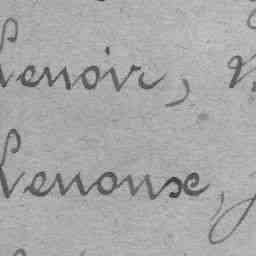 Lenoir,
Lenoux,